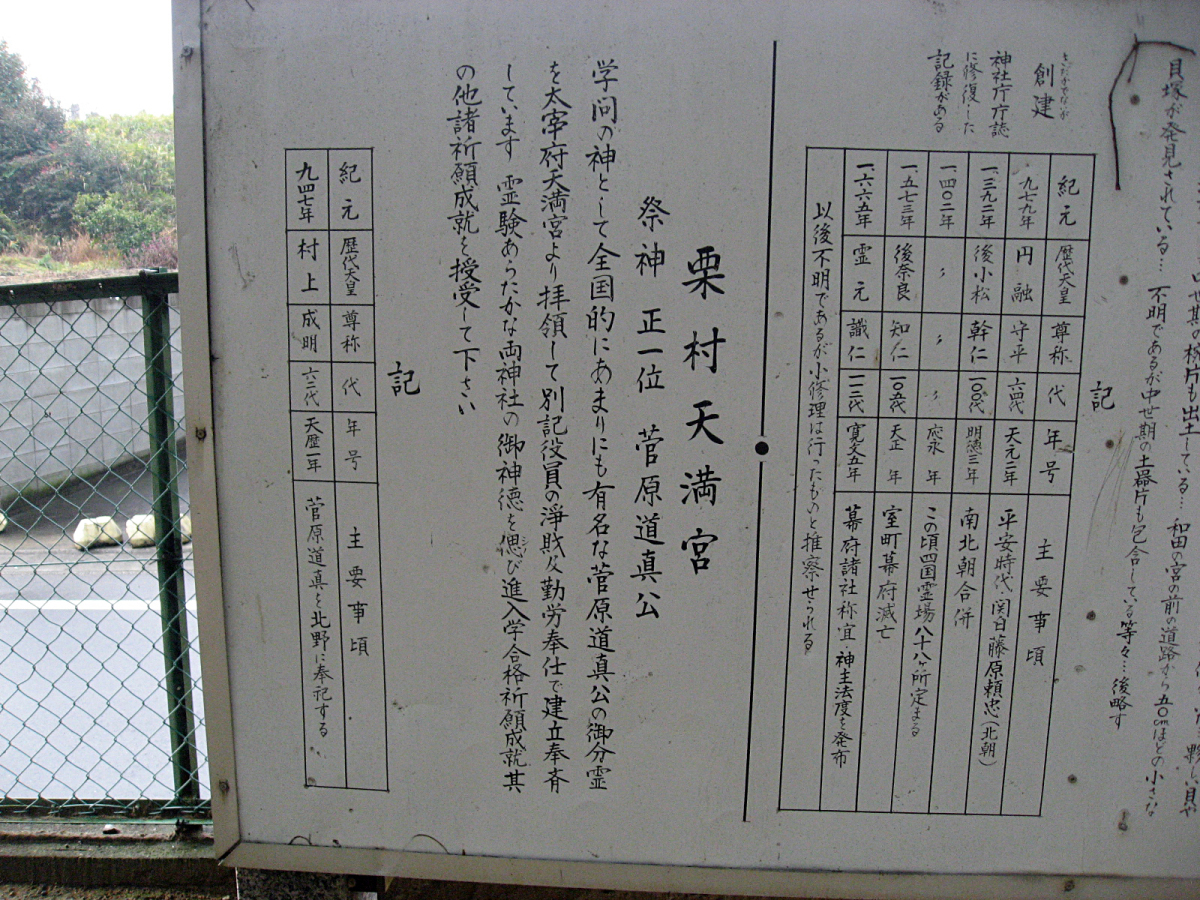 貝塚が発見されている… 不明であるが中世期の土器片も包含している等々…後略す
和田の宮の前の道路から五〇cmほどの小さな
記
創建
神社庁庁誌
に修復した
記録がある
紀元 歴代天皇 尊称 代 年号 主要事頃
九七九年 円融 守平 六四代 天元二年 平安時代、関白藤原頼忠(北朝)
一、三九二年 後小松 幹仁 一〇〇代 明徳三年 南北朝合併
一、四〇二年 〃 〃 〃 応永 年 この頃四国霊場八十八ヶ所定まる
一、五七三年 後奈良 知仁 一〇五代 天正 年 室町幕府滅亡
一、六六五年 霊元 識仁 一一二代 寛文五年 幕府諸社称宜・神主法度を発布
以後不明であるが小修理は行ったものと推察せられる
栗村天満宮
祭神 正一位 菅原道真公
学問の神として全国的にあまりにも有名な菅原道真公の御分霊
を太宰府天満宮より拝領して別記役員の浄財及勤労奉仕で建立奉斉
しています 霊験あらたかな両神社の御神徳を偲び進入学合格祈願成就其
の他諸祈願成就を授受して下さい
記
紀元 歴代天皇 尊称 代 年号 主要事頃
九四七年 村上 成明 六二代 天歴一年 菅原道真を北野に奉祀する